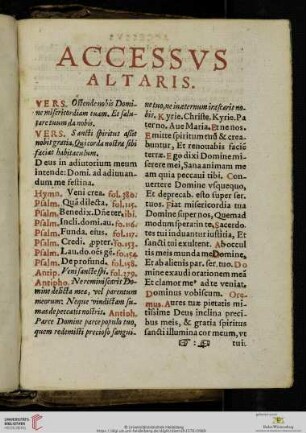 ACCESSVS
ALTARIS.
VERS. Ostende nobis Domi-
ne misericordiam tuam. Et salu-
tare tuum da nobis.
VERS. Sancti spiritus assit
nobis gratia. Qui corda nostra sibi
faciat habitaculum.
Deus in adiutorium meum
intende: Domi. ad adiuuan-
dum me festina.
Hymn. Veni crea. fol.380.
Psalm. Quā dilecta.
Psalm. Benedix. Dñe ter. ibi.
Psalm. Incli. domi. au.
Psalm. Funda. eius. fol.
Psalm. Credi. ,ppter. fo.153.
Psalm. Lau. do. oēs gē. fo.154.
Psalm. De profund. fol.158.
Antip. Veni sancte spi. fol.279.
Antipho. Ne reminiscaris Do-
mine delicta mea, vel parentum
meorum: Neque vindictam su-
mas de peccatis nostris. Antiph.
Parce Domine parce populo tuo,
quem redemisti precioso sangui-
ne tuo, ne in æternum irascaris no-
bis. Kyrie. Christe. Kyrie. Pa
ternoster, Aue Maria. Et ne nos.
Emitte spiritum tuū & crea-
buntur, Et renouabis faciē
terræ. Ego dixi Domine mi-
serere mei, Sana animam me
am quia peccaui tibi. Con-
uertere Domine vsquequo,
Et deprecab. esto super ser-
tuos. Fiat misericordia tua
Domine super nos, Quemad
modum sperauim te, Sacerdo
tes tui induantur iustitia, Et
sancti tui exultent. Ab occul
tis meis munda me Domine,
Et ab alienis par. ser. tuo. Do
mine exaudi orationem meā
Et clamor me⁹ ad te veniat.
Dominus vobiscum. Ore-
mus. Aures tuæ pietatis mi-
tissime Deus inclina preci-
bus meis, & gratia spiritus
sancti illumina cor meum, vt
tui
UNIVERSITÄTS-
BIBLIOTHEK
HEIDELBERG
© Universitätsbibliothek Heidelberg